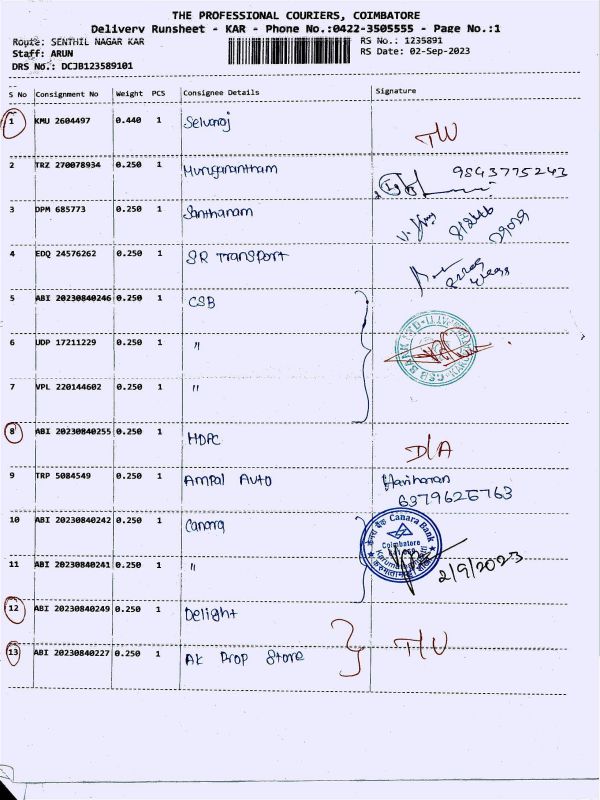 THE PROFESSIONAL COURIERS, COIMBATORE
Delivery Runsheet - KAR - Phone No.:0422-3505555 - Page No.:1
Route: SENTHIL NAGAR KAR
RS No.: 1235891
Staff: ARUN
RS Date: 02-Sep-2023
DRS No.: DCJB123589101
S No Consignment No Weight PCS Consignee Details Signature
1 KMU 2604497 0.440 1 Selvaraj T/U
2 TRZ 270078934 0.250 1 Murugarantham 9843775243
3 DPM 685773 0.250 1 Santhanam
4 EDQ 24576262 0.250 1 SR Transport
5 ABI 20230840246 0.250 1 CSB
6 UDP 17211229 0.250 1 "
7 VPL 220144602 0.250 1 "
8 ABI 20230840255 0.250 1 HDFC D/A
9 TRP 5084549 0.250 1 Ampal Auto Hariharan
6379625763
10 ABI 20230840242 0.250 1 Canara
Canara Bank
Coimbatore
11 ABI 20230840241 0.250 1 " 2/9/2023
12 ABI 20230840249 0.250 1 Delight
13 ABI 20230840227 0.250 1 AK Prop Store T/U